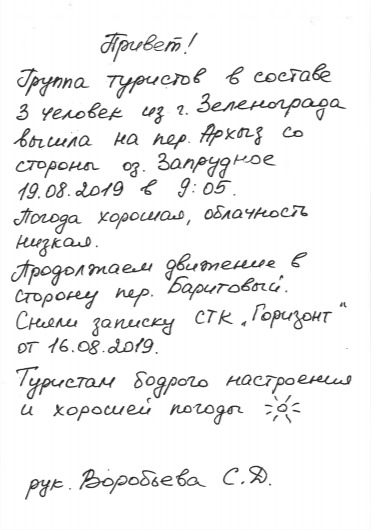 Привет!
Группа туристов в составе
3 человек из г. Зеленограда
вышла на пер. Архыз со
стороны оз. Запрудное
19.08.2019 в 9:05.
Погода хорошая, облачность
низкая.
Продолжаем движение в
сторону пер. Баритовый.
Сняли записку СТК „Горизонт"
от 16.08.2019.
Туристам бодрого настроения
и хорошей погоды
рук. Воробьева С.Д.